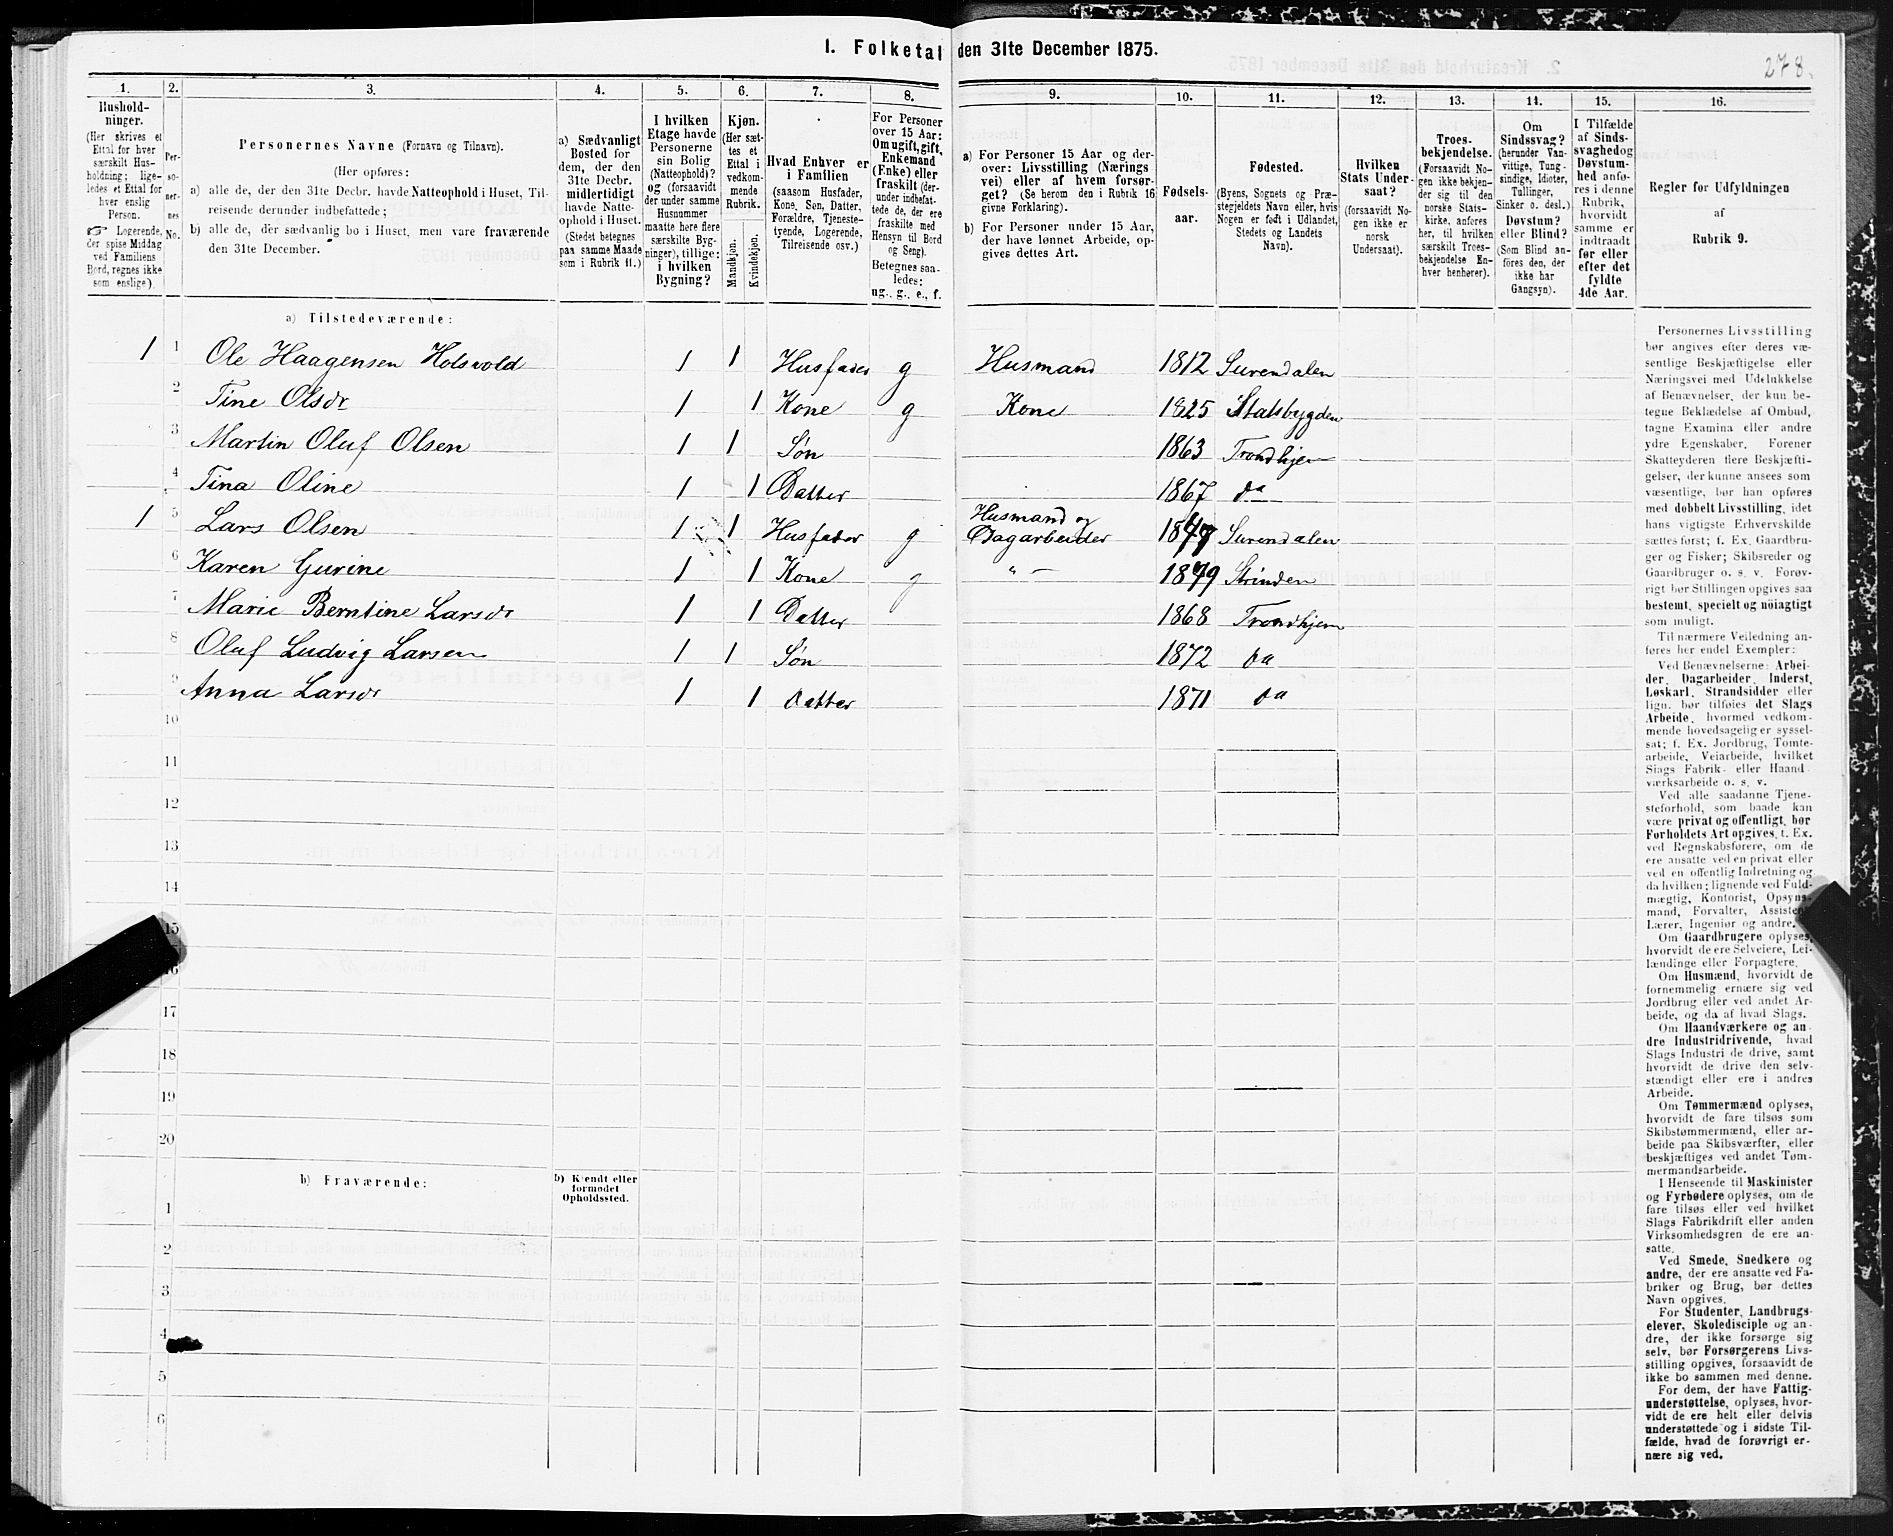 1. Folketal den 31te December 1875.
278.
1. 2. 3. 4. 5. 6. 7. 8. 9. 10. 11. 12. 13. 14. 15. 16.
Hushold-
ninger.
(Her skrives et
Ettal for hver
særskilt Hus-
holdning; lige-
ledes et Ettal for
hver enslig
Person.
☞ Logerende,
der spise Middag
ved Familiens
Bord, regnes ikke
som enslige).
Per-
so-
ner-
nes
No.
Personernes Navne (Fornavn og Tilnavn).
(Her opføres:
a) alle de, der den 31te Decbr. havde Natteophold i Huset, Til-
reisende derunder indbefattede;
b) alle de, der sædvanlig bo i Huset, men vare fraværende
den 31te December.
a) Sædvanligt
Bosted for
dem, der den
31te Decbr.
midlertidigt
havde Natte-
ophold i Huset.
(Stedet betegnes
paa samme Maade
som i Rubrik 11.)
I hvilken
Etage havde
Personerne
sin Bolig
(Natteophold)?
og (forsaavidt
der under samme
Husnummer
maatte høre flere
særskilte Byg-
ninger), tillige:
i hvilken
Bygning?
Kjøn.
(Her sæt-
tes et
Ettal i
vedkom-
mende
Rubrik.
Mandkjøn.
Kvindekjøn.
Hvad Enhver er
i Familien
(saasom Husfader,
Kone, Søn, Datter,
Forældre, Tjeneste-
tyende, Logerende,
Tilreisende osv.)
For Personer
over 15 Aar:
Om ugift, gift,
Enkemand
(Enke) eller
fraskilt (der-
under indbefat-
tede de, der ere
fraskilte med
Hensyn til Bord
og Seng).
Betegnes saa-
ledes:
ug., g., e., f.
a) For Personer 15 Aar og der-
over: Livsstilling (Nærings
vei) eller af hvem forsør-
get? (Se herom den i Rubrik 16
givne Forklaring).
b) For Personer under 15 Aar,
der have lønnet Arbeide, op-
gives dettes Art.
Fødsels-
aar.
Fødested.
(Byens, Sognets og Præ-
stegjeldets Navn eller, hvis
Nogen er født i Udlandet,
Stedets og Landets
Navn).
Hvilken
Stats Under-
saat?
(forsaavidt No-
gen ikke er
norsk
Undersaat).
Troes-
bekjendelse.
(Forsaavidt No-
gen ikke bekjen-
der sig til den
norske Stats-
kirke, anføres
her, til hvilken
særskilt Troes-
bekjendelse En-
hver henhører).
Om
Sindssvag?
(herunder Van-
vittige, Tung-
sindige, Idioter,
Tullinger,
Sinker o. desl.)
Døvstum?
eller Blind?
(Som Blind an-
føres den, der
ikke har
Gangsyn).
I Tilfælde
af Sinds-
svaghed og
Døvstum-
hed anfø-
res i denne
Rubrik,
hvorvidt
samme er
indtraadt
før eller
efter det
fyldte
4de Aar.
Regler for Udfyldningen
af
Rubrik 9.
a) Tilstedeværende:
1 1 Ole Haagensen Holsvold 1 1 Husfader g Husmand 1812 Surendalen
2 Tine Olsdr 1 1 Kone g Kone 1825 Statsbygden
3 Martin Oluf Olsen 1 1 Søn 1863 Trondhjem
4 Tina Oline 1 1 Datter 1867 da
1 5 Lars Olsen 1 1 Husfader g Husmand og Dagarbeider 1847 Surendalen
6 Karen Gurine 1 1 Kone g " — 1879 Strinden
7 Marie Berntine Larsdr 1 1 Datter 1868 Trondhjem
8 Oluf Ludvig Larsen 1 1 Søn 1872 da
9 Anna Larsdr 1 1 Datter 1871 da
10
11
12
13
14
15
16
17
18
19
20
b) Fraværende:
b) Kjendt eller
formodet
Opholdssted.
1
2
3
4
5
6
Personernes Livsstilling
bør angives efter deres væ-
sentlige Beskjæftigelse eller
Næringsvei med Udelukkelse
af Benævnelser, der kun be-
tegne Beklædelse af Ombud,
tagne Examina eller andre
ydre Egenskaber. Forener
Skatteyderen flere Beskjæfti-
gelser, der kunne ansees som
væsentlige, bør han opføres
med dobbelt Livsstilling, idet
hans vigtigste Erhvervskilde
sættes først; f. Ex. Gaardbru-
ger og Fisker; Skibsreder og
Gaardbruger o. s. v. Forøv-
rigt bør Stillingen opgives saa
bestemt, specielt og nøiagtigt
som muligt.
Til nærmere Veiledning an-
føres her endel Exempler:
Ved Benævnelserne: Arbei-
der, Dagarbeider, Inderst,
Løskarl, Strandsidder eller
lign. bør tilføies det Slags
Arbeide, hvormed vedkom-
mende hovedsagelig er syssel-
sat; f. Ex. Jordbrug, Tomte-
arbeide, Veiarbeide, hvilket
Slags Fabrik- eller Haand
værksarbeide o. s. v.
Ved alle saadanne Tjene-
steforhold, som baade kan
være privat og offentligt, bør
Forholdets Art opgives, t. Ex.
ved Regnskabsførere, om de
ere ansatte ved en privat eller
ved en offentlig Indretning og
da hvilken; lignende ved Fuld-
mægtig, Kontorist, Opsyns-
mand, Forvalter, Assistent,
Lærer, Ingeniør og andre.
Om Gaardbrugere oplyses,
hvorvidt de ere Selveiere, Lei-
lændinge eller Forpagtere.
Om Husmænd, hvorvidt de
fornemmelig ernære sig ved
Jordbrug eller ved andet Ar-
beide, og da af hvad Slags.
Om Haandværkere og an-
dre Industridrivende, hvad
Slags Industri de drive, samt
hvorvidt de drive den selv-
stændigt eller ere i andres
Arbeide.
Om Tømmermænd oplyses,
hvorvidt de fare tilsøs som
Skibstømmermænd, eller ar-
beide paa Skibsværfter, eller
beskjæftiges ved andet Tøm-
mermandsarbeide.
I Henseende til Maskinister
og Fyrbødere oplyses, om de
fare tilsøs eller ved hvilket
Slags Fabrikdrift eller anden
Virksomhedsgren de ere an-
satte.
Ved Smede, Snedkere og
andre, der ere ansatte ved Fa-
briker og Brug, bør dettes
Navn opgives.
For Studenter, Landbrugs-
elever, Skoledisciple og an-
dre, der ikke forsørge sig
selv, bør Forsørgerens Livs-
stilling opgives, forsaavidt de
ikke bo sammen med denne.
For dem, der have Fattig-
understøttelse, oplyses, hvor-
vidt de ere helt eller delvis
understøttede og i sidste Til-
fælde, hvad de forøvrigt er-
nære sig ved.